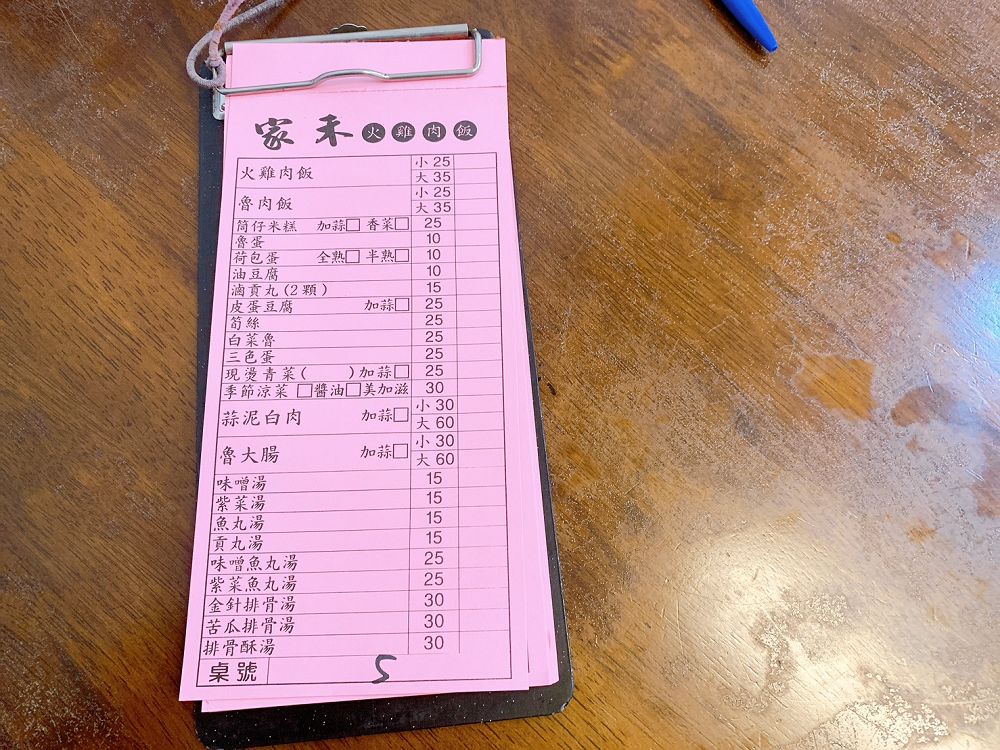 家禾火雞肉飯
火雞肉飯 小 25
大 35
魯肉飯 小 25
大 35
筒仔米糕 加蒜□ 香菜□ 25
魯蛋 10
荷包蛋 全熟□ 半熟□ 10
油豆腐 10
滷貢丸(2顆) 15
皮蛋豆腐 加蒜□ 25
筍絲 25
白菜魯 25
三色蛋 25
現燙青菜( )加蒜□ 25
季節涼菜 □醬油□美加滋 30
蒜泥白肉 加蒜□ 小 30
大 60
魯大腸 加蒜□ 小 30
大 60
味噌湯 15
紫菜湯 15
魚丸湯 15
貢丸湯 15
味噌魚丸湯 25
紫菜魚丸湯 25
金針排骨湯 30
苦瓜排骨湯 30
排骨酥湯 30
桌號 5